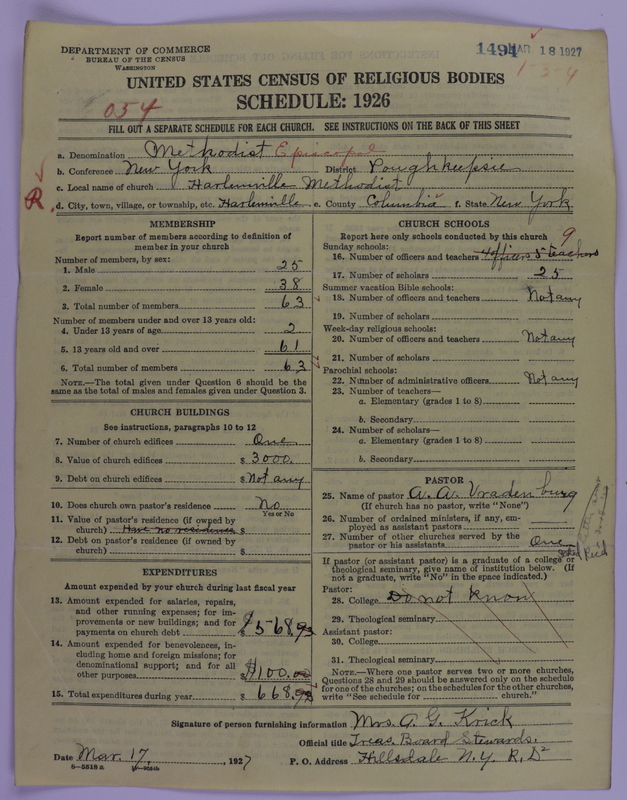 DEPARTMENT OF COMMERCE
BUREAU OF THE CENSUS
WASHINGTON
1494 MAR 18 1927
1-5-4
UNITED STATES CENSUS OF RELIGIOUS BODIES
SCHEDULE: 1926
054
FILL OUT A SEPARATE SCHEDULE FOR EACH CHURCH. SEE INSTRUCTIONS ON THE BACK OF THIS SHEET
a. Denomination Methodist Episcopal
b. Conference New York District Poughkeepsie
c. Local name of church Harlemville Methodist
R. d. City, town, village, or township, etc. Harlemville e. County Columbia f. State New York
MEMBERSHIP
Report number of members according to definition of
member in your church
Number of members, by sex:
1. Male 25
2. Female 38
3. Total number of members 63
Number of members under and over 13 years old:
4. Under 13 years of age 2
5. 13 years old and over 61
6. Total number of members 63
NOTE.—The total given under Question 6 should be
same as the total of males and females given under Question 3.
CHURCH BUILDINGS
See instructions, paragraphs 10 to 12
7. Number of church edifices One
8. Value of church edifices $ 3000.
9. Debt on church edifices $ Not any
10. Does church own pastor's residence No
Yes or No
11. Value of pastor's residence (if owned by
church) Have no residence $
12. Debt on pastor's residence (if owned by
church) $
EXPENDITURES
Amount expended by your church during last fiscal year
13. Amount expended for salaries, repairs,
and other running expenses; for im-
provements or new buildings; and for
payments on church debt $568.93
14. Amount expended for benevolences, in-
cluding home and foreign missions; for
denominational support; and for all
other purposes $100.00
15. Total expenditures during year $ 668.93
CHURCH SCHOOLS
Report here only schools conducted by this church 9
Sunday schools:
16. Number of officers and teachers 4 officers 5 teachers
17. Number of scholars 25
Summer vacation Bible schools:
18. Number of officers and teachers Not any
19. Number of scholars
Week-day religious schools:
20. Number of officers and teachers Not any
21. Number of scholars
Parochial schools:
22. Number of administrative officers Not any
23. Number of teachers—
a. Elementary (grades 1 to 8)
b. Secondary
24. Number of scholars—
a. Elementary (grades 1 to 8)
b. Secondary
PASTOR
25. Name of pastor A. A. Vradenburg
(If church has no pastor, write "None")
26. Number of ordained ministers, if any, em-
ployed as assistant pastors
27. Number of other churches served by the
pastor or his assistants One
If pastor (or assistant pastor) is a graduate of a college or
theological seminary, give name of institution below. (If
not a graduate, write "No" in the space indicated.)
Pastor:
28. College Do not know
29. Theological seminary
Assistant pastor:
30. College
31. Theological seminary
NOTE.—Where one pastor serves two or more churches,
Questions 28 and 29 should be answered only on the schedule
for one of the churches; on the schedules for the other churches,
write "See schedule for church."
Signature of person furnishing information Mrs. A. G. Krick
Official title Treas. Board Stewards.
Date Mar. 17, , 1927 P. O. Address Hillsdale N.Y. R.D2